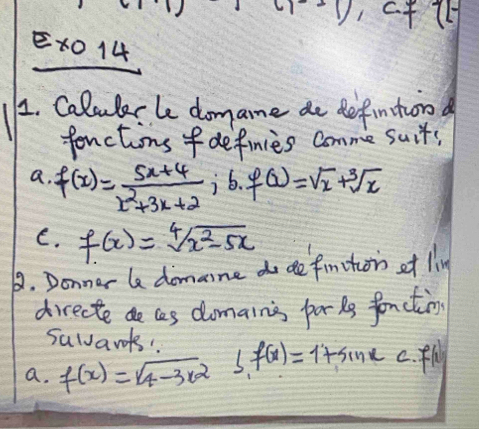 Exo 14
1. Calculer le domaine de définition d
fonctions f definiès comme suit:
a. f(x) = (5x+4)/(x²+3x+2) ; b. f(x) = √x + ∛x
c. f(x) = ∜(x²-5x)
2. Donner le domaine de définition et
directe de ces domaines par les fonction
suivants:
a. f(x) = √(4-3x2) b. f(x) = 1+sinx c. f(